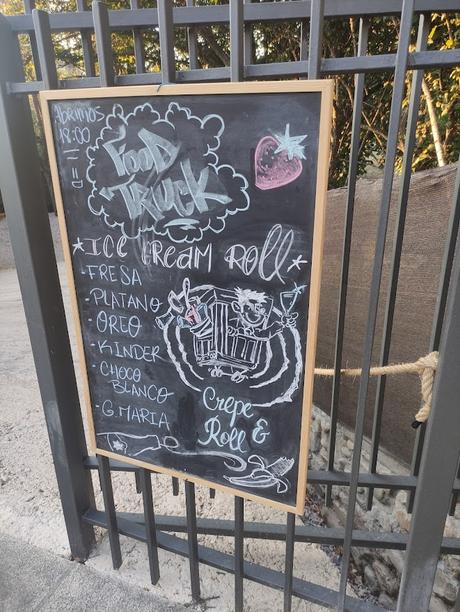 Abrimos
18:00
FOOD
TRUCK
ICE CREAM ROLL
- FRESA
- PLATANO
- OREO
- KINDER
- CHOCO
BLANCO
- G. MARIA
Crepe
Roll &